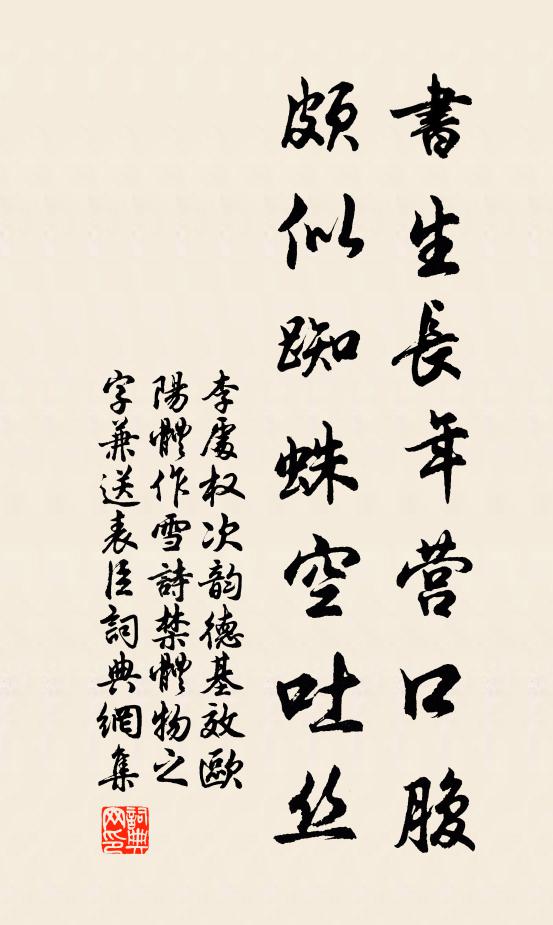 書生長年营口腹
頗似踟蛛空吐丝
李處权次韵德基效歐
陽體作雪詩禁體物之
字兼送表臣詞典網集
詞典
网印